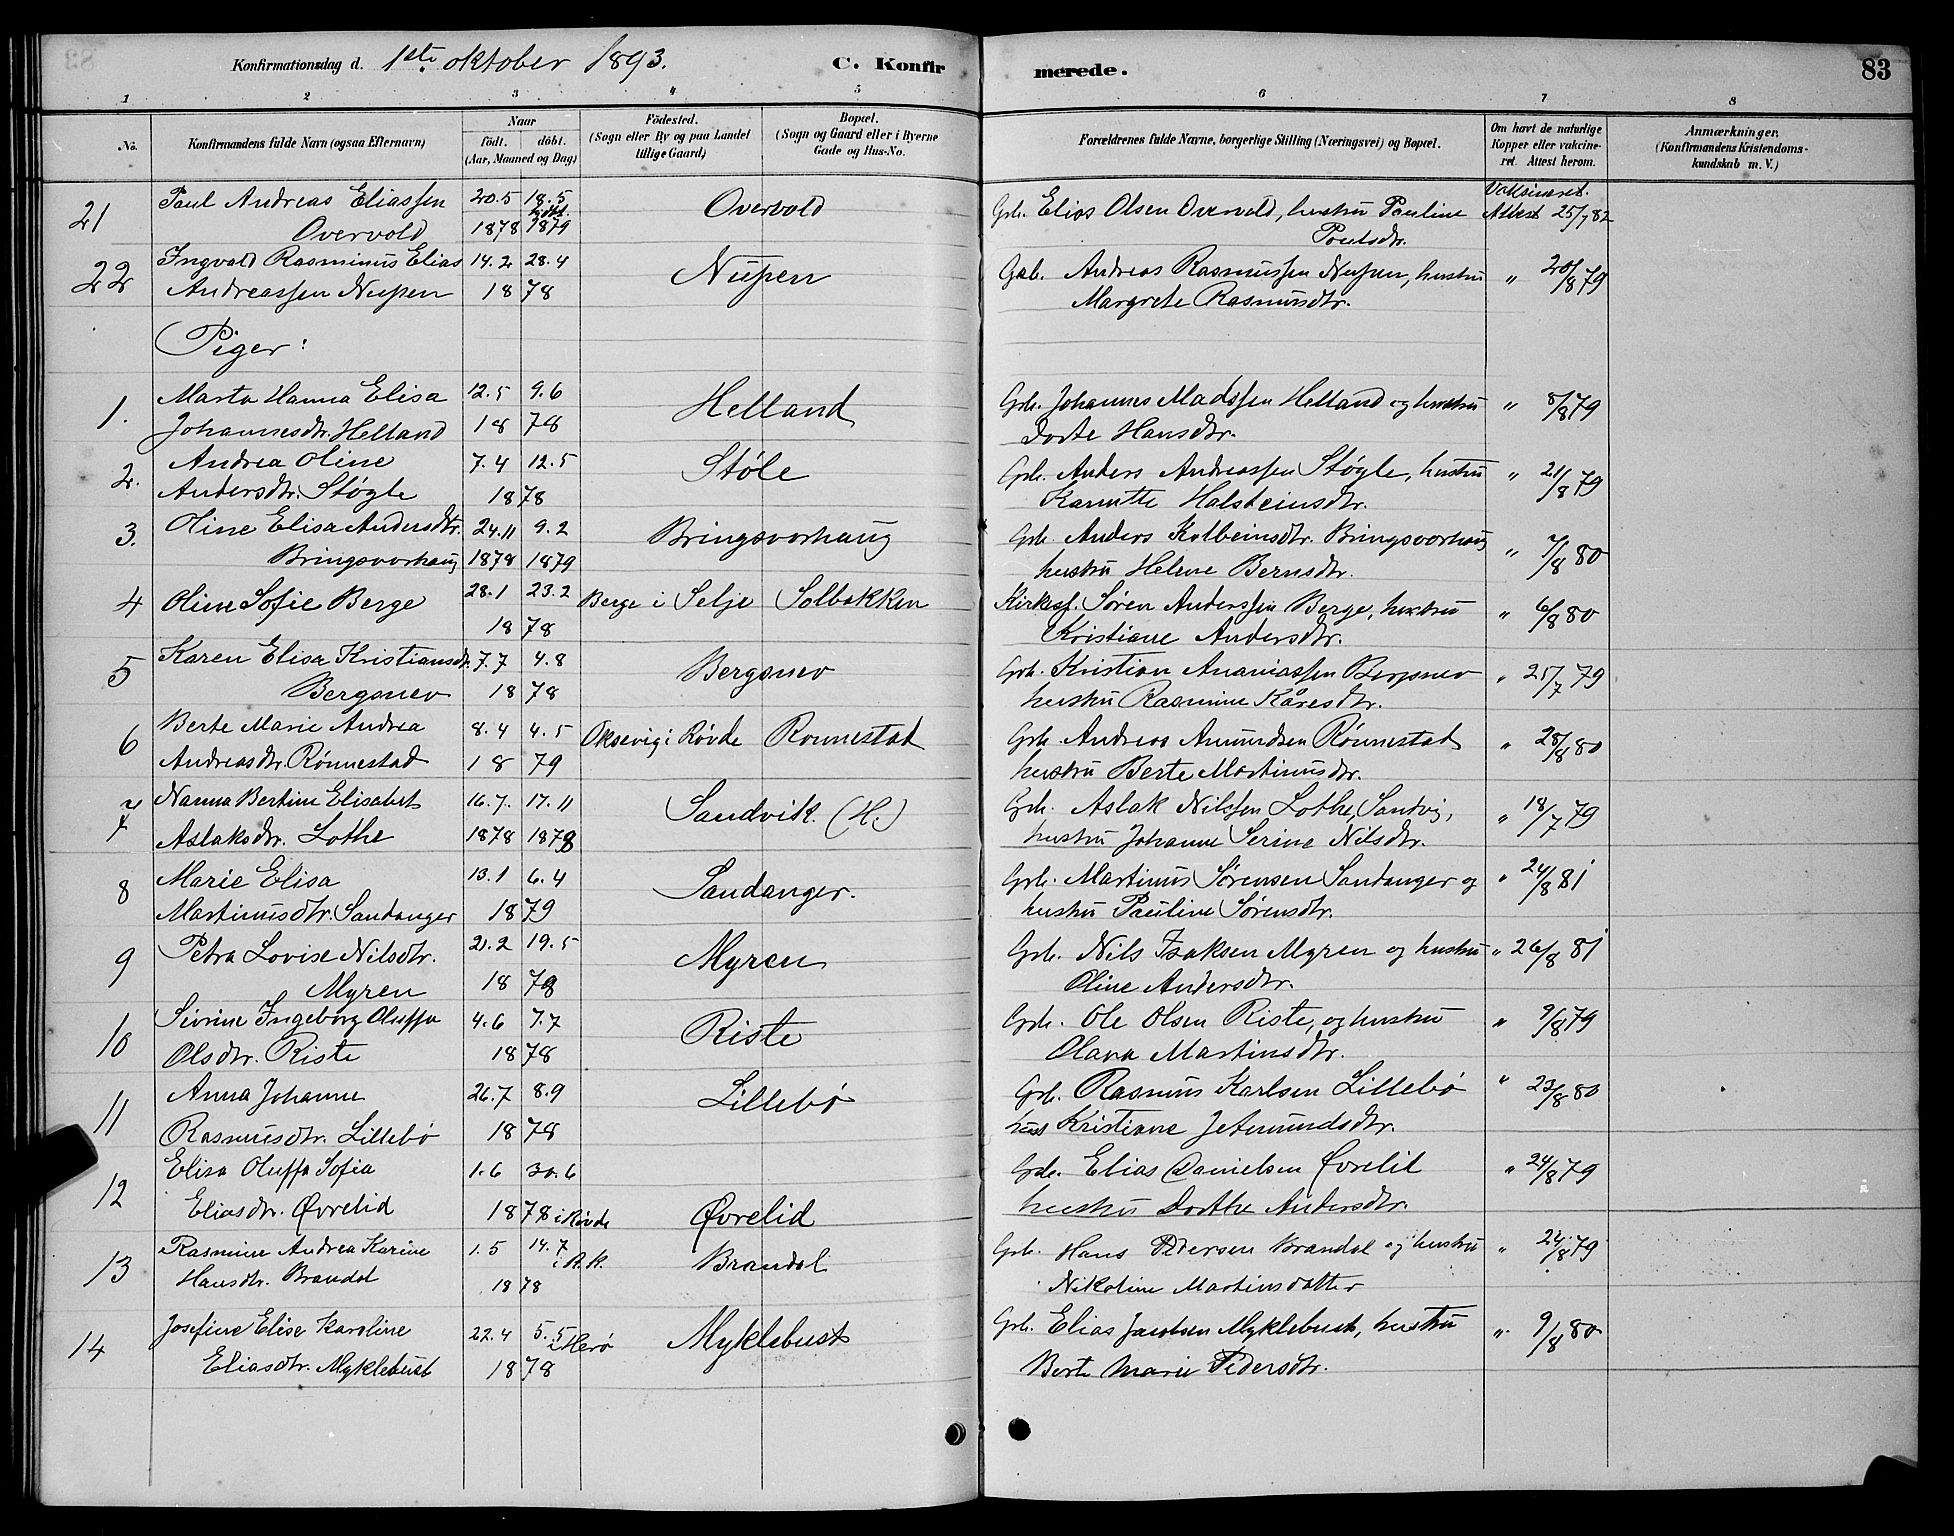 Konfirmationsdag d. 1ste oktober 1893. C. Konfir merede. 83
1 2 3 4 5 6 7 8
No. Konfirmandens fulde Navn (ogsaa Efternavn) Naar Födested. Bopæl. Forældrenes fulde Navne, borgerlige Stilling (Næringsvei) og Bopæl. Om havt de naturlige Anmærkninger.
födt. döbt. (Sogn eller By og paa Landet (Sogn og Gaard eller i Byerne Kopper eller vakcine- (Konfirmandens Kristendoms-
(Aar, Maaned og Dag) tillige Gaard) Gade og Hus-No. ret. Attest herom. kundskab m. V.)
21 Paul Andreas Eliassen 20.5 18.5 Overvold Grb. Elias Olsen Overvold, hustru Pauline Vaksineret. Attest 25/7 82
Overvold 1878 1879 Poulsdtr.
22 Ingvald Rasminus Elias 14.2 28.4 Nupen Gab. Andreas Rasmussen Nupen, hustru " 20/8 79
Andreassen Nupen 1878 Margrete Rasmusdtr.
Piger:
1. Marta Hanna Elisa 12.5 9.6 Helland Grb. Johannes Madssen Helland og hustru " 8/8 79
Johannesdtr. Helland 1878 Dorte Hansdtr.
2. Andrea Oline 7.4 12.5 Støle Grb. Anders Andreassen Støgle, hustru " 21/8 79
Andersdtr. Støgle 1878 Kanutte Halsteinsdtr.
3. Oline Elisa Andersdtr. 24.11 9.2 Bringsvorhaug Grb. Anders Kolbeinsdtr. Bringsvorhaug " 7/8 80
Bringsvorhaug 1878 1879 hustru Helene Bernsdtr.
4 Oline Sofie Berge 28.1 23.2 Berge i Selje Solbakken Kirkesg. Søren Anderssen Berge, hustru " 6/8 80
1878 Kristiane Andersdtr.
5 Karen Elisa Kristiansdtr. 7.7 4.8 Bergsnev Grb. Kristian Ananiassen Bergsnev " 25/7 79
Bergsnev 1878 hustru Rasmine Kåresdtr.
6 Berte Marie Andrea 8.4 4.5 Oksevig i Røvde Ronnestad Grb. Andreas Amundsen Rønnestad " 28/8 80
Andreasdtr. Rønnestad 1879 hustru Berte Martinusdtr.
7 Nanna Bertine Elisabet 16.7. 17.11 Sandvik. (H.) Grb. Aslak Nilssen Lothe, Sandvig, " 18/7 79
Aslaksdtr. Lothe 1878 1878 hustru Johanne Serine Nilsdtr.
8 Marie Elisa 13.1 6.4 Sandanger. Grb. Martinus Sørensen Sandanger og " 24/8 81
Martinusdtr. Sandanger 1879 hustru Pauline Sørensdtr.
9 Petra Lovise Nilsdtr. 21.2 19.5 Myren Grb. Nils Isaksen Myren og hustru " 26/8 81
Myren 1878 Oline Andersdtr.
10 Sivrine Ingeborg Oluffa 4.6 7.7 Riste Grb. Ole Olsen Riste, og hustru " 9/8 79
Olsdtr. Riste 1878 Olava Martinsdtr.
11 Anna Johanne 26.7 8.9 Lillebø Grb. Rasmus Karlsen Lillebø " 23/8 80
Rasmusdtr. Lillebø 1878 hus Kristiane Jetmundsdtr.
12 Elisa Oluffa Sofia 1.6 30.6 Grb. Elias Danielsen Øvrelid " 24/8 79
Eliasdtr. Øvrelid 1878 i Røvde Øvrelid hustru Dorthe Andersdtr.
13 Rasmine Andrea Karine 1.5 14.7 Brandal Grb. Hans Pedersen Brandal og hustru " 24/8 79
Hansdtr. Brandal 1878 Nikoline Martinsdatter
14 Josefine Elise Karoline 22.4 5.5 i Herø Myklebust Grb. Elias Jacobsen Myklebust, hustru " 9/8 80
Eliasdtr. Myklebust 1878 Berte Marie Pedersdtr.